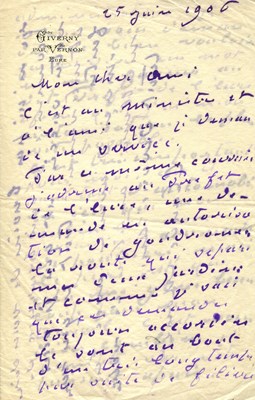 25 juin 1906
GIVERNY
PAR VERNON
EURE
Mon cher Ami
C'est au ministre et
à l'ami que je deman
de un service.
Par ce même courrier
j'adresse au Préfet
de l'Eure, une de-
mande en autorisa
tion de goudronner
la route qui sépare
mes deux jardins
et comme je sais
que ces demandes
toujours accordées
le sont au bout
d'un très long temps